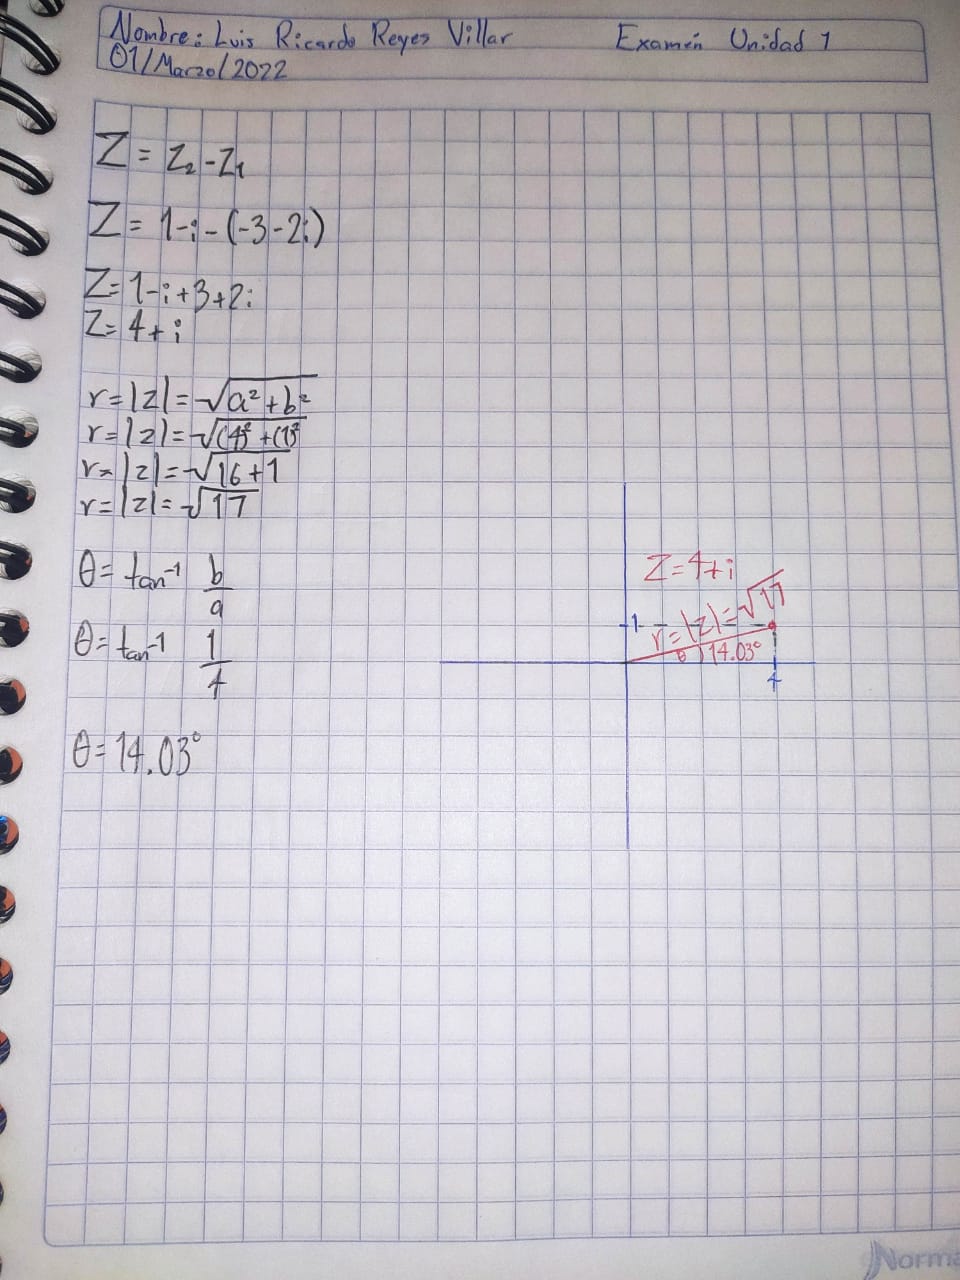 Nombre: Luis Ricardo Reyes Villar Examén Unidad 1
01/Marzo/2022
Z = Z₂ - Z₁
Z = 1-i-(-3-2i)
Z = 1-i+3+2i
Z = 4+i
r=|z|=√a²+b²
r=|z|=√(4)²+(1)²
r=|z|=√16+1
r=|z|=√17
θ = tan⁻¹ b/a
θ = tan⁻¹ 1/4
θ = 14.03°
Z=4+i
1
r=|z|=√17
θ 14.03°
4
Norma